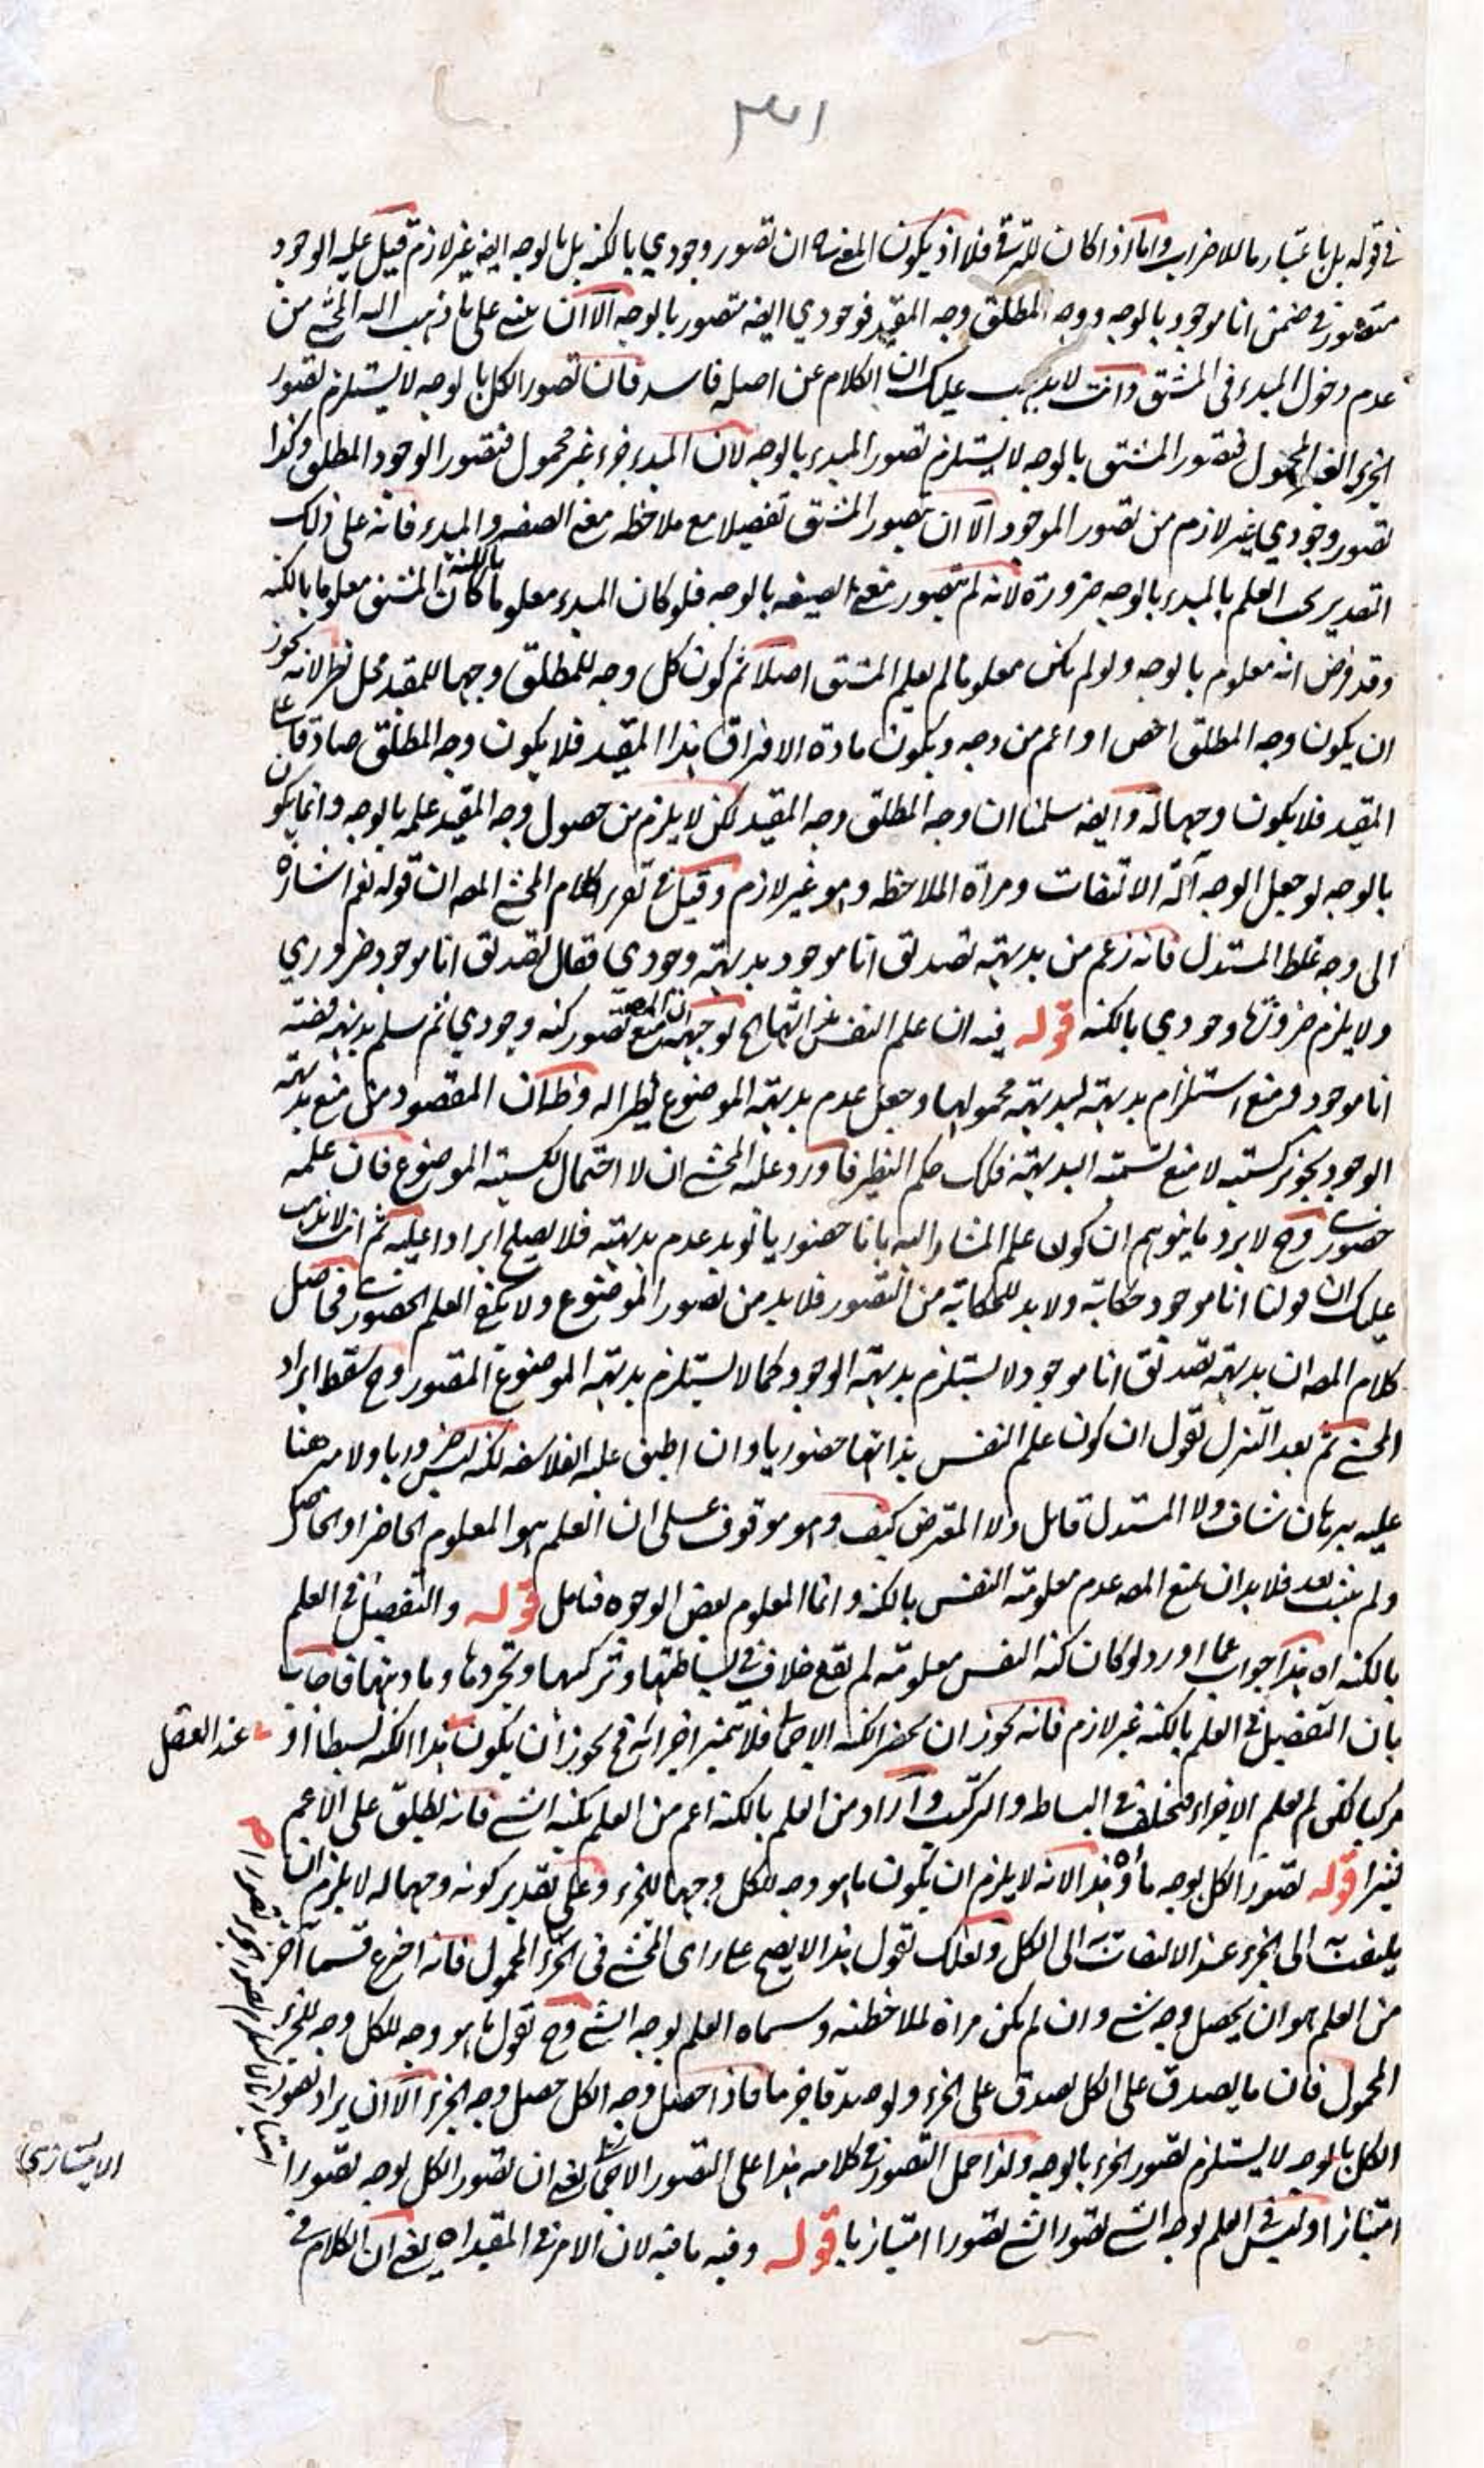 ٣٤١
في قوله بل باعتبار ما للاضراب واما اذا كان للترقي فلا اذ يكون المعنى ان تصور وجودي بالكنه بل بالوجه ايضا غير لازم قيل عليه الوجود
متصور في ضمن انا موجود بالوجه ووجه المطلق وجه المقيد فوجودي ايضا متصور بالوجه الا ان يبنى على ما ذهب اليه المحشي من
عدم دخول المبدء في المشتق وانت لا يذهب عليك ان الكلام عن اصله فاسد فان تصور الكل بالوجه لا يستلزم تصور
الجزء الغير المحمول فتصور المشتق بالوجه لا يستلزم تصور المبدء بالوجه لان المبدء جزء غير محمول فتصور الوجود المطلق وكذا
تصور وجودي غير لازم من تصور الموجود الا ان يتصور المشتق تفصيلا مع ملاحظة معنى الصفة والمبدء فانه على ذلك
التقدير يجب العلم بالمبدء بالوجه ضرورة لانه لم يتصور معنى الصيغه بالوجه فلو كان المبدء معلوما بالكنه كان المشتق معلوما بالكنه
وقد فرض انه معلوم بالوجه ولو لم يكن معلوما لم يعلم المشتق اصلا ثم كون كل وجه للمطلق وجها للمقيد محل نظر لانه يجوز
ان يكون وجه المطلق اخص او اعم من وجه ويكون مادة الافتراق هذا المقيد فلا يكون وجه المطلق صادقا على
المقيد فلا يكون وجها له وايضا سلمنا ان وجه المطلق وجه المقيد لكن لا يلزم من حصول وجه المقيد علمه بالوجه وانما يكون
بالوجه لو جعل الوجه آلة الالتفات ومرآة الملاحظه وهو غير لازم وقيل في تقرير كلام المحشي المصه ان قوله نعم اشارة
الى وجه غلط المستدل فانه زعم من بديهية تصديق انا موجود بديهية وجودي فقال تصديق انا موجود ضروري
ولا يلزم ضرورتها وجودي بالكنه قوله فيه ان علم النفس بذاتها الخ توجيهه ان المصه منع تصور كنه وجودي ثم سلم بديهية قضية
انا موجود ومنع استلزام بديهته لبديهية محمولها وجعل عدم بديهية الموضوع نظرا له وظ ان المقصود من منع بديهية
الوجود تجويز كسبيته لا منع تسميته البديهية فكك حكم النظير فاورد عليه المحشي ان لا احتمال لكسبية الموضوع فان علمه
حضوري وح لا يرد ما يتوهم ان كون علم المشار اليه بانا حضوريا توبد عدم بديهيته فلا يصلح ايرادا عليه ثم انت لا يذهب
عليك ان قولنا انا موجود حكاية ولا بد للحكاية من التصور فلا بد من تصور الموضوع ولا يكفي العلم الحضوري فحاصل
كلام المصه ان بديهية تصديق انا موجود لا يستلزم بديهية الوجود كما لا يستلزم بديهية الموضوع المتصور وح سقط ايراد
المحشي ثم بعد التنزل نقول ان كون علم النفس بذاتها حضوريا وان اطبق عليه الفلاسفه لكنه ليس ضروريا ولا مبرهنا
عليه ببرهان شاف ولا المستدل قائل ولا المعترض كيف وهو موقوف على ان العلم هو المعلوم الحاضر او الحاصل
ولم يثبت بعد فلا بد ان يمنع المصه عدم معلومية النفس بالكنه وانما المعلوم بعض الوجوه فتامل قوله والتفصيل في العلم
بالكنه اه هذا جواب عما اورد لو كان كنه النفس معلومة لم يقع خلاف في بساطتها وتركيبها وتجردها وماديتها فاجاب
بان التفصيل في العلم بالكنه غير لازم فانه يجوز ان يحضر الكنه الاجمالي فلا تميز اجزائه فح يجوز ان يكون هذا الكنه بسيطا او
عند العقل
مركبا لكن لم يعلم الاجزاء فتخلف في البساطه والتركيب واراد من العلم بالكنه اعم من العلم بكنه الشي فانه يطلق على الاعم
كثيرا قوله تصور الكل بوجه ما اه هذا لانه لا يلزم ان يكون ما هو وجه للكل وجها للجزء وعلى تقدير كونه وجها له لا يلزم ان
يلتفت به الى الجزء عند الالتفات به الى الكل ولعلك تقول هذا لا يصح على راى المحشي في الجزء المحمول فانه اخترع قسما آخر
من العلم هو ان يحصل وجه شي وان لم يكن مرآة لملاحظته وسماه العلم بوجه الشي وح نقول ما هو وجه للكل وجه للجزء
المحمول فان ما يصدق على الكل يصدق على الجزء ولو صدقا جزءيا فاذا حصل وجه الكل حصل وجه الجزء الا ان يراد تصور
الكل بالوجه لا يستلزم تصور الجزء بالوجه ولذا حمل التصور في كلامه هذا على التصور الاجمالي يعني ان تصور الكل بوجه تصورا
امتيازيا وليس في العلم بوجه الشي تصور الشي تصورا امتيازيا قوله وفيه ما فيه لان الامر في المقيد اه يعني ان الكلام في